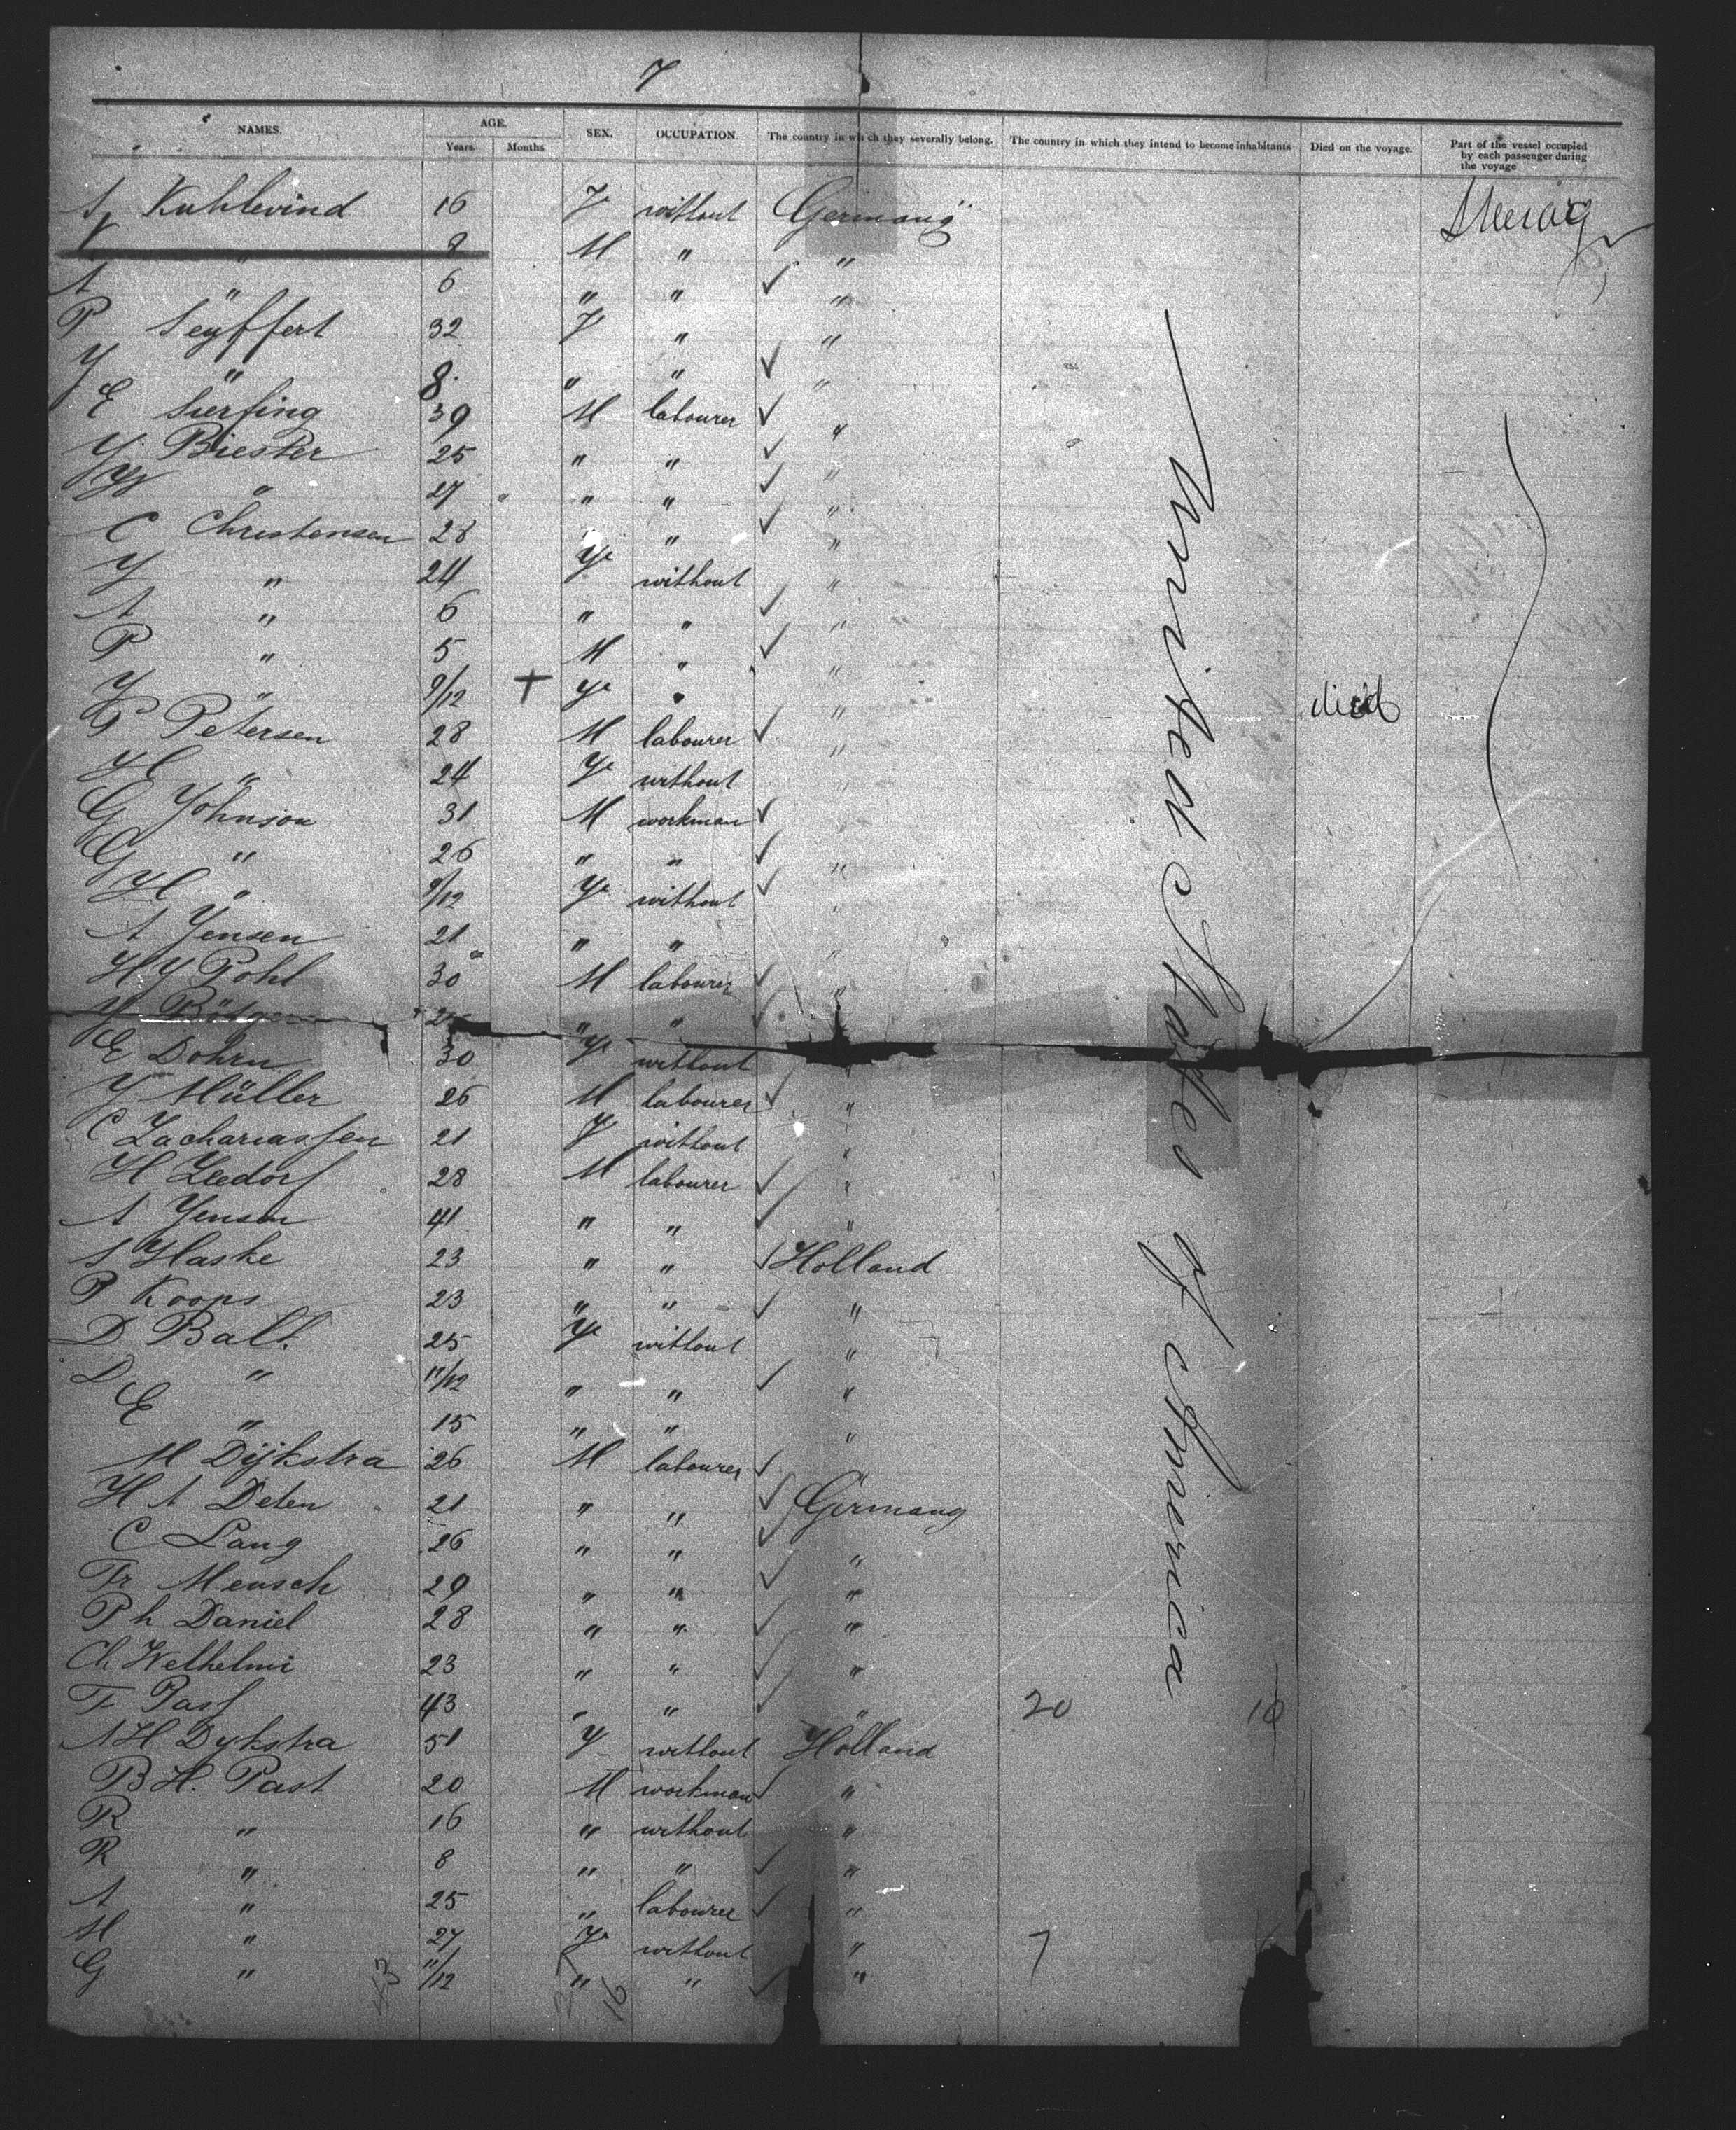 7
NAMES. AGE. Years. Months. SEX. OCCUPATION. The country in which they severally belong. The country in which they intend to become inhabitants Died on the voyage. Part of the vessel occupied by each passenger during the voyage
Kuhlewind 16 F without Germany
" 8 M " "
A " 6 " " "
P Seyffert 32 F " "
" 8 " " "
E 39 M labourer "
Biester 25 " " "
" 27 " " "
C Christensen 28 " "
Y " 24 Fe without "
A " 6 " " "
P " 5 M " "
Y " 9/12 + Fe " " died
P Petersen 28 M labourer "
H " 24 Fe without "
G Johnson 31 M workman "
G " 26 " " "
H " 9/12 Fe without "
A Yensen 21 " " "
H Y Pohl 30 M labourer "
" "
E Dohrn 30 Fe without "
Y Müller 26 M labourer "
C Zachariassen 21 F without "
H Leedorf 28 M labourer "
A Yensen 41 " " "
Haske 23 " " Holland
P Koops 23 " " "
D Balt. 25 Fe without "
D " 11/12 " " "
E " 15 " " "
M Dijkstra 26 M labourer "
H A Deten 21 " " Germany
C Lang 26 " " "
Fr Mensch 29 " " "
Ph Daniel 28 " " "
Ch Welhelmi 23 " " "
F 43 " " " 20 10
A H Dykstra 51 F without Holland
B H. Past 20 M workman "
R " 16 " without "
R " 8 " " "
A " 25 " labourer "
M " 27 Fe without " 7
G " 11/12 " " "
43 27 16
United States of America